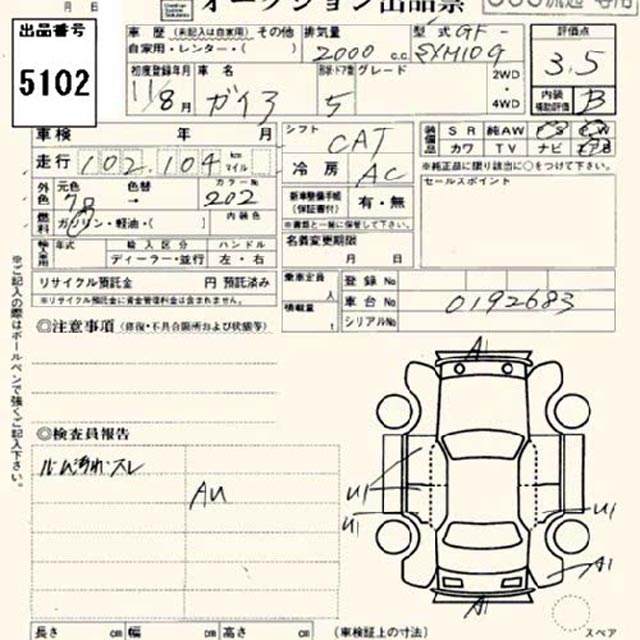 月 日
オークション出品票
出品番号
5102
車歴 (未記入は自家用) その他
自家用・レンター・( )
排気量
2000 c.c.
型式 GF-
SXM10G
評価点
3.5
内装
補助評価
B
初度登録年月
11/8月
車名
ガイア
形状・ドア数
5
グレード
2WD
・
4WD
車検 年 月
走行 102,104 km マイル
シフト
CAT
冷房 AC
装備品
SR 純AW PS PW
カワ TV ナビ
※純正品に限り該当に○をつけて下さい。
外色
元色 色替 カラーNo
→ 202
燃料
ガソリン・軽油・( )
内装色
新車整備手帳
(保証書付)
有・無
※書類と一緒に保管して下さい。
セールスポイント
輸入車用
年式 輸入区分 ハンドル
ディーラー・並行 左・右
名義変更期限
月 日
リサイクル預託金 円 預託済み
※リサイクル預託金に資金管理料金は含まれません。
乗車定員
人
積載量
t
登録No
車台No 0192683
シリアルNo
※ご記入の際はボールペンで強くご記入下さい。
◎注意事項 (修復・不具合箇所および状態等)
◎検査員報告
ルーム汚れ・スレ
AU
A1
U1
U1
U1
A1
A1
長さ cm 幅 cm 高さ cm (車検証上の寸法)
スペア